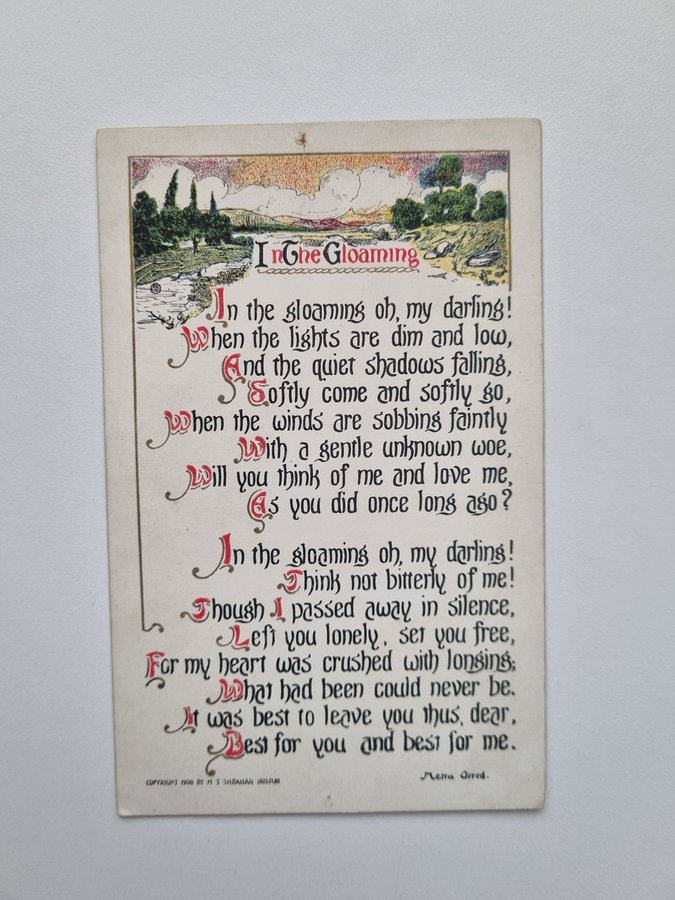 In The Gloaming
In the gloaming oh, my darling!
When the lights are dim and low,
And the quiet shadows falling,
Softly come and softly go,
When the winds are sobbing faintly
With a gentle unknown woe,
Will you think of me and love me,
As you did once long ago?
In the gloaming oh, my darling!
Think not bitterly of me!
Though I passed away in silence,
Left you lonely, set you free,
For my heart was crushed with longing;
What had been could never be.
It was best to leave you thus, dear,
Best for you and best for me.
COPYRIGHT 1908 BY M T SHEAHAN BOSTON
Meta Orred.